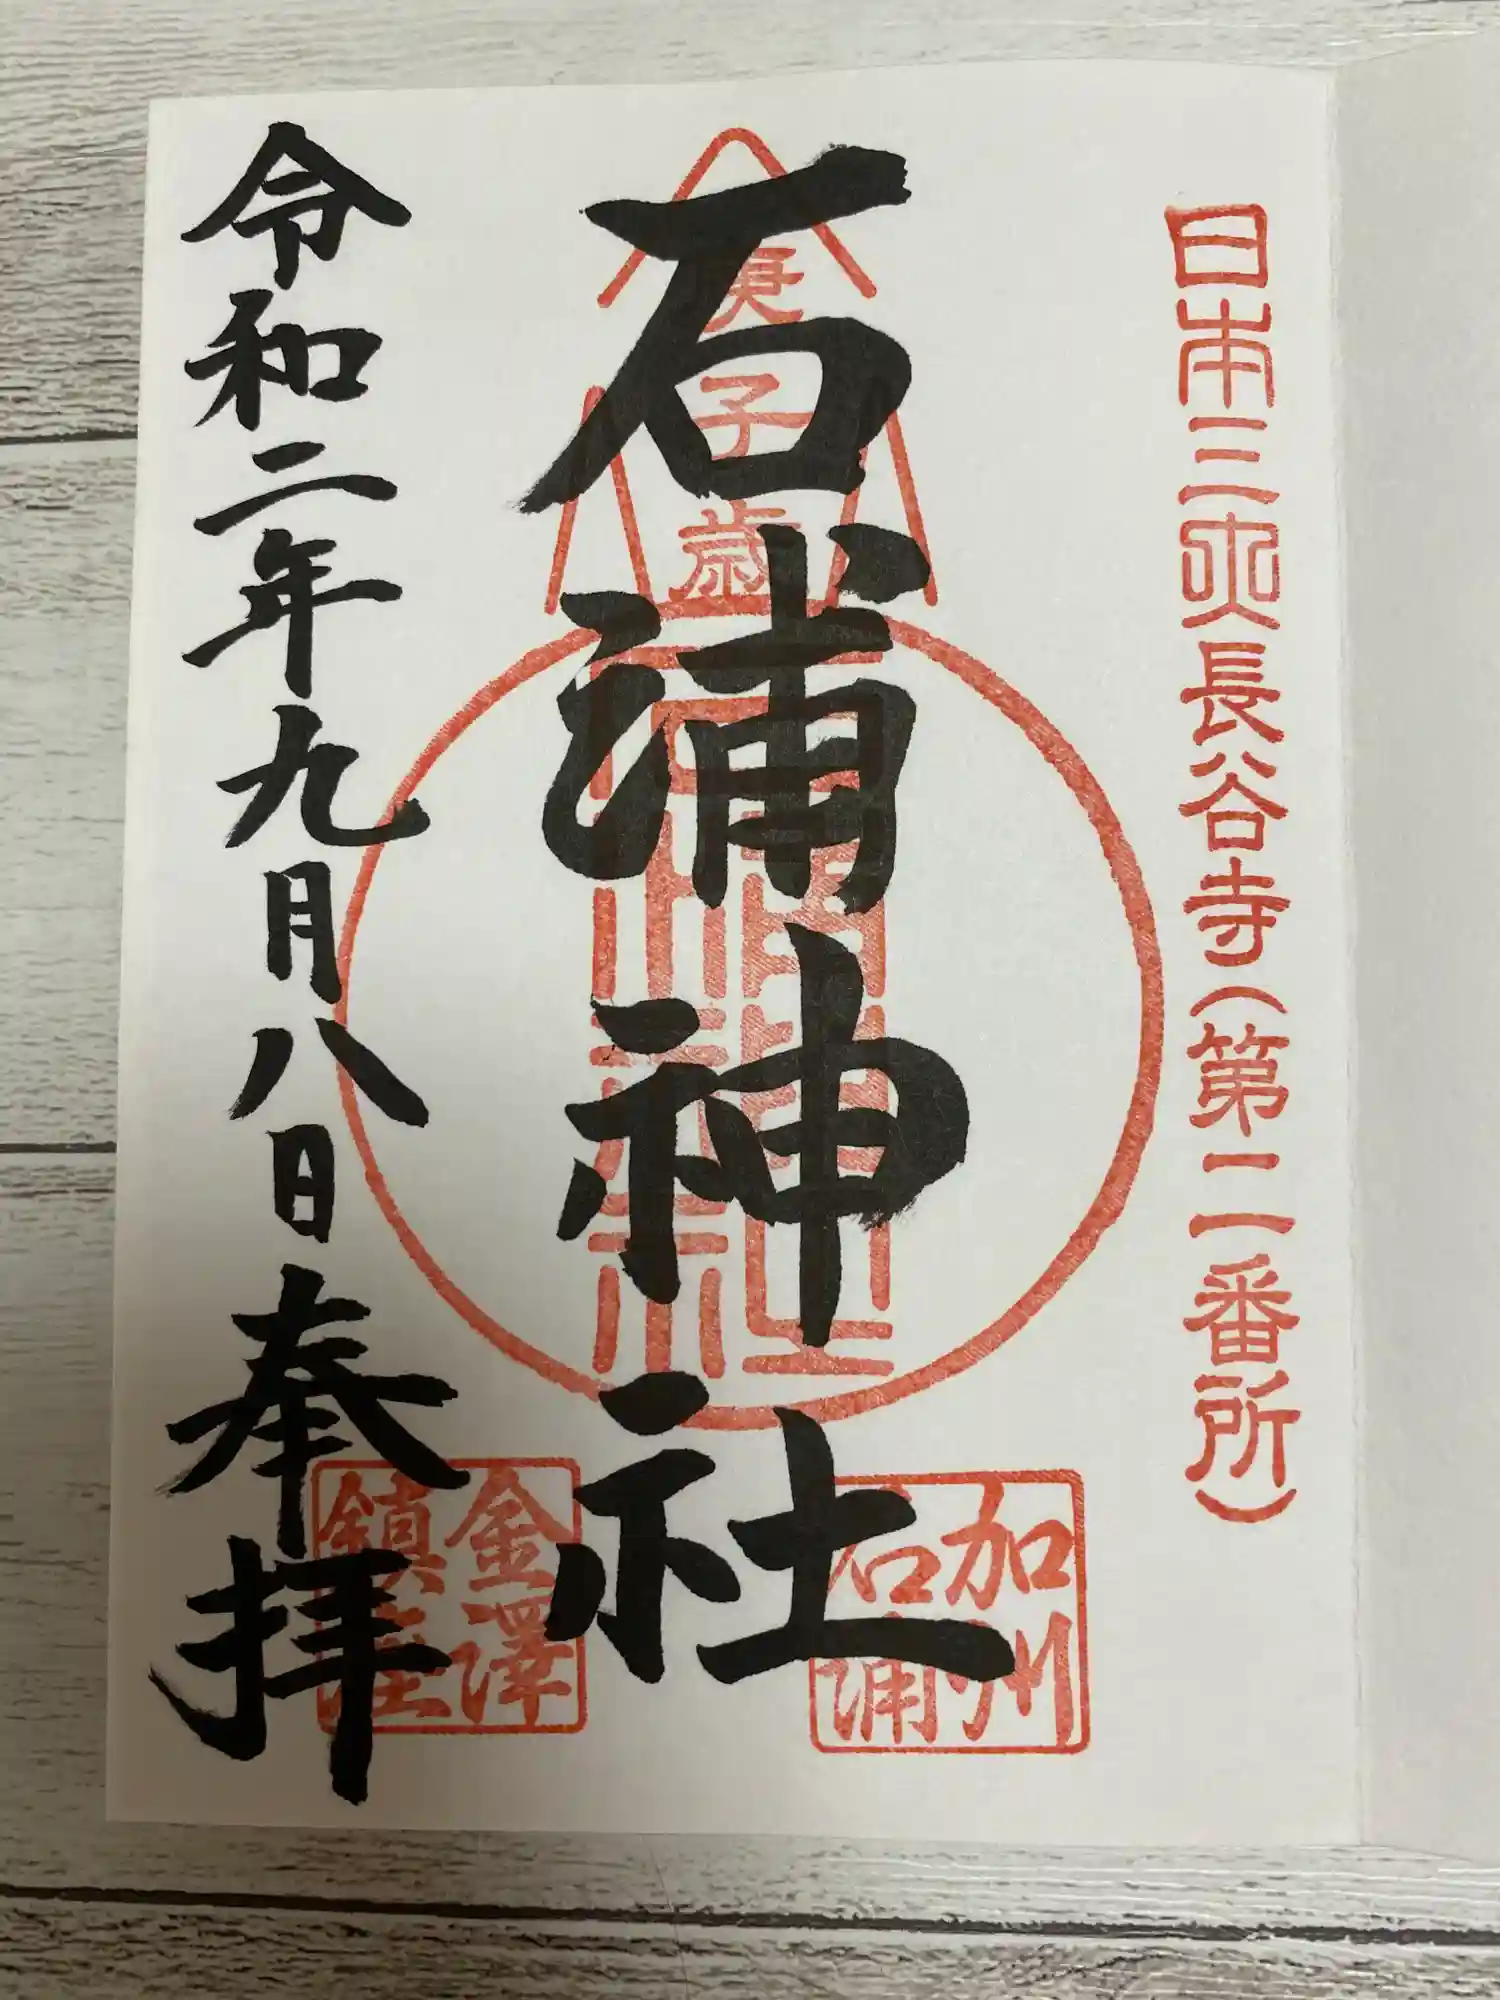 日本三大長谷寺(第二番所)
石浦神社
庚子歳
加州
石浦
金澤
鎮座
令和二年九月八日奉拝